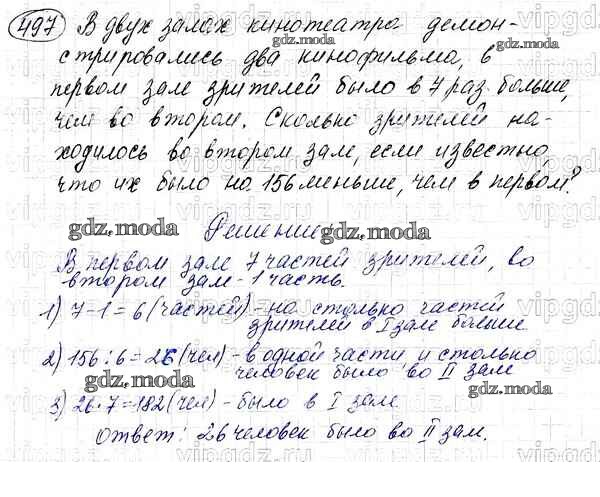 497 В двух залах кинотеатра демон-
стрировались два кинофильма, в
первом зале зрителей было в 7 раз больше,
чем во втором. Сколько зрителей на-
ходилось во втором зам, если известно
что их было на 156 меньше, чем в первом?
Решение:
В первом зале 7 частей зрителей, во
втором зам - 1 часть.
1) 7-1=6 (частей) - на столько частей
зрителей в I зале больше
2) 156:6=26 (чел) - в одной части и столько
человек было во II зам
3) 26·7=182 (чел) - было в I зале
Ответ: 26 человек было во II зам.
gdz.moda
gdz.moda
gdz.moda
gdz.moda
gdz.moda
gdz.moda
vipgdz.ru